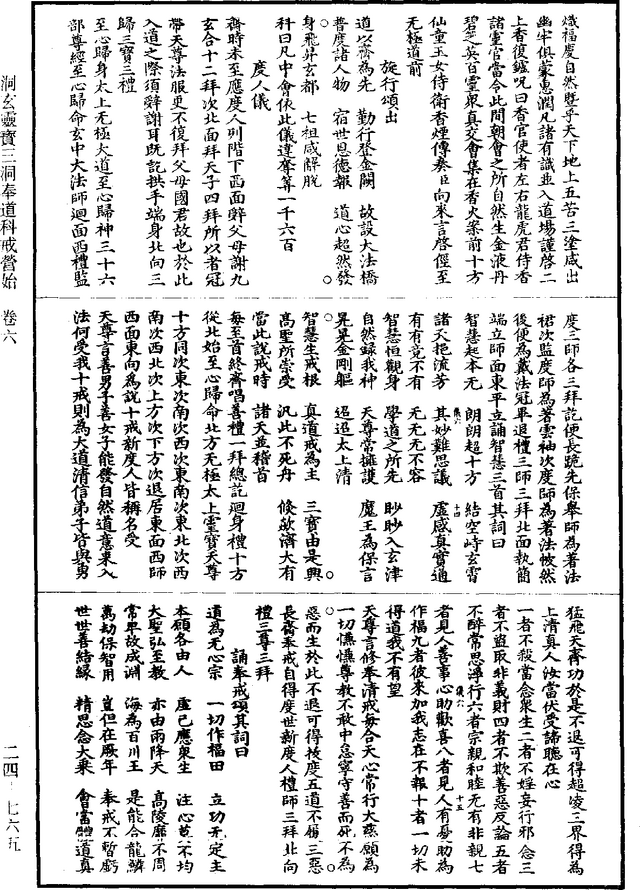 熾福慶自然曁乎天下地上五苦三塗咸出
幽牢俱蒙惠潤凡諸有識並入道場謹啓二
上香復鑪呪曰香官使者左右龍虎君侍香
諸靈官當令此間朝會之所自然生金液丹
碧芝英百靈衆真交會集在香火案前十方
仙童玉女侍衛香煙傳奏臣向來言啓徑至
无極道前
旋行頌出
道以齋為先　勤行登金闕　故設大法橋
普度諸人物　宿世恩德報　道心超然發
身飛昇玄都　七祖咸解脫
科曰凡中會依此儀違奪筭一千六百
度人儀
齋時未至應度人列階下西面辭父母謝九
玄合十二拜次北面拜天子四拜所以者冠
帶天尊法服更不復拜父母國君故也於此
入道之際須辭謝耳既訖拱手端身北向三
歸三寶三禮
至心歸身太上无極大道至心歸神三十六
部尊經至心歸命玄中大法師迴面西禮監
度三師各三拜訖便長跪先保舉師為著法
裙次監度師為著雲袖次度師為著法帔然
後便為戴法冠畢退禮三師三拜北面執簡
端立師面東平立誦智慧三首其詞曰
智慧起本无　朗朗超十方　結空峙玄霄
諸天挹流芳　其妙難思議　虛感真實通
有有竟不有　无无无不容
智慧恒觀身　學道之所先　眇眇入玄津
自然錄我神　天尊常擁護　魔王為保言
晃晃金剛軀　迢迢太上清
智慧生戒根　真道戒為主　三寶由是興
高聖所崇受　汎此不死舟　倏欻濟大有
當此說戒時　諸天並稽首
每至首終齋唱善禮一拜總訖迴身禮十方
從北始至心歸命北方无極太上靈寶天尊
十方同次東次南次西次東南次東北次西
南次西北次上方次下方次退居東面西師
西面東向為說十戒新度人皆稱名受
天尊言善男子善女子能發自然道意來入
法門受我十戒則為大道清信弟子皆與勇
猛飛天齊功於是不退可得超凌三界得為
上清真人汝當伏受諦聽在心
一者不殺當念衆生二者不婬妄行邪念三
者不盜取非義財四者不欺善惡反論五者
不醉常思淨行六者宗親和睦无有非親七
者見人善事心助歡喜八者見人有憂助為
作福九者彼來加我志在不報十者一切未
得道我不有望
天尊言修奉清戒每合天心常行大慈願為
一切憔憔尊教不敢中怠寧守善而死不為
惡而生於此不退可得拔度五道不履三惡
長齋奉戒自得度世新度人禮師三拜北向
禮三尊三拜
誦奉戒頌其詞曰
道為无心宗　一切作福田　立功无定主
本願各由人　虛己應衆生　注心莫不均
大聖弘至教　亦由雨降天　高陵靡不周
常卑故成淵　海為百川王　是能合龍鱗
萬劫保智用　豈但在厥年　奉戒不暫虧
世世善結緣　精思念大乘　會當體道真
洞玄靈寶三洞奉道科戒營始　卷六
二四－七六五